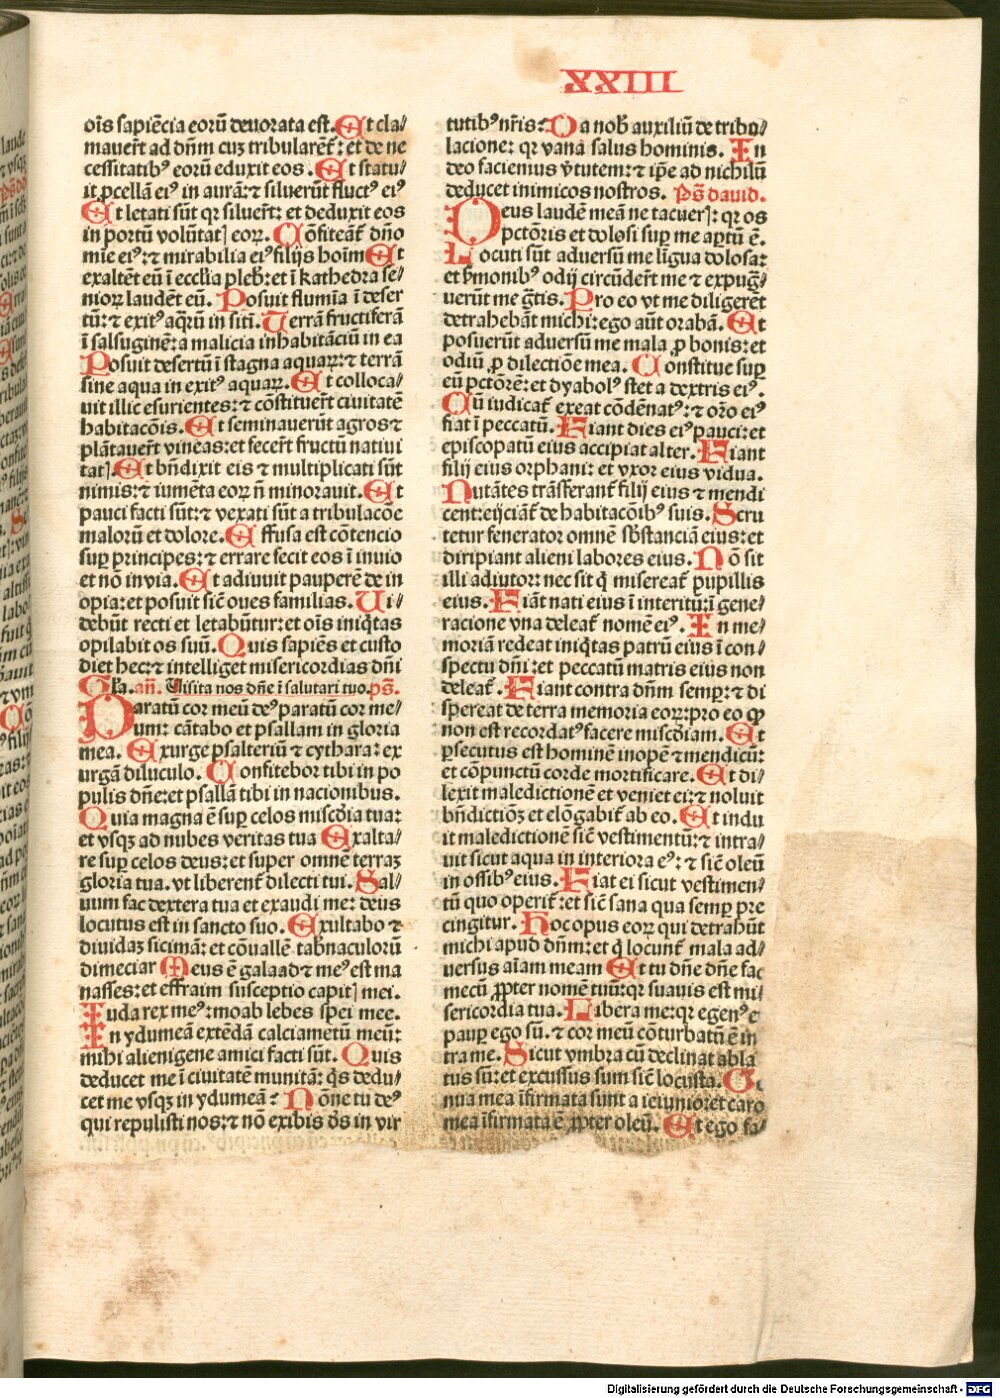 XXIII
oı̄s sapiēcia eorū deuorata est. Et cla/
mauer̄t ad dn̄m cuꝫ tribularēt᷑: et de ne
cessitatibꝰ eorū eduxit eos. Et statu/
it ꝓcellā eiꝰ in aurā: ⁊ siluerūt fluctꝰ eiꝰ
Et letati sūt qꝛ siluer̄t: et deduxit eos
in portū volūtatꝭ eoꝝ. Cōfiteāt᷑ dn̄o
mīe eiꝰ: ⁊ mirabilia eiꝰ filijs hoīm Et
exaltēt eū ī eccl̄ia plebꝭ: et ī kathedra se/
nioꝝ laudēt eū. Posuit flumīa ī deser
tū: ⁊ exitꝰ aq̄rū in sitī. Terrā fructiferā
ī salsuginē: a malicia inhabitāciū in ea
Posuit desertū ī stagna aquaꝝ: ⁊ terrā
sine aqua in exitꝰ aquaꝝ. Et colloca/
uit illic esurientes: ⁊ cōstituer̄t ciuitatē
habitacōis. Et seminauerūt agros ⁊
plātauer̄t vineas: et fecer̄t fructū natiui
tatꝭ. Et bn̄dixit eis ⁊ multiplicati sūt
nimis: ⁊ iumēta eoꝝ n̄ minorauit. Et
pauci facti sūt: ⁊ vexati sūt a tribulacōe
malorū et dolore. Effusa est cōtencio
suꝑ principes: ⁊ errare fecit eos ī inuio
et nō in via. Et adiuuit pauperē de in
opia: et posuit sic̄ oues familias. Ui/
debūt recti et letabūtur: et oīs iniq̄tas
opilabit os suū. Quis sapiēs et custo
diet hec: ⁊ intelliget misericordias dn̄i
Gl̄a. an̄. Visita nos dn̄e ī salutari tuo. ps̄.
Paratū cor meū deꝰ paratū cor me/
um: cātabo et psallam in gloria
mea. Exurge psalteriū ⁊ cythara: ex
urgā diluculo. Confitebor tibi in po
pulis dn̄e: et psallā tibi in nacionibus.
Quia magna ē suꝑ celos misc̄dia tua:
et vsqꝫ ad nubes veritas tua Exalta/
re suꝑ celos deus: et super omnē terraꝫ
gloria tua. vt liberent᷑ dilecti tui. Sal/
uum fac dextera tua et exaudi me: deus
locutus est in sancto suo. Exultabo ⁊
diuidaꝫ sicimā: et cōuallē tab̄naculorū
dimeciar Meus ē galaad ⁊ meꝰ est ma
nasses: et effraim susceptio capitꝭ mei.
Iuda rex meꝰ: moab lebes spei mee.
In ydumeā extēdā calciametū meū:
mihi alienigene amici facti sūt. Quis
deducet me ī ciuitatē munitā: q̄s dedu/
cet me vsqꝫ in ydumeā ⁊ Nōne tu deꝰ
qui repulisti nos: ⁊ nō exibis d̄s in vir
tutibꝰ nr̄is: Da nob̄ auxiliū de tribu/
lacione: qꝛ vana salus hominis. In
deo faciemus v̄tutem: ⁊ ip̄e ad nichilū
deducet inimicos nostros. Ps̄ dauid.
Deus laudē meā ne tacuerꝭ: qꝛ os
pctōris et dolosi suꝑ me aꝑtū ē.
Locuti sūt aduersū me līgua dolosa:
et ẜmonibꝰ odij circūder̄t me ⁊ expuḡ/
uerūt me gr̄tis. Pro eo vt me diligerēt
detrahebāt michi: ego aūt orabā. Et
posuerūt aduersū me mala ꝓ bonis: et
odiū ꝓ dilectiōe mea. Constitue suꝑ
eū pctōrē: et dyabolꝰ stet a dextris eiꝰ.
Cū iudicat᷑ exeat cōdēnatꝰ: ⁊ or̄o eiꝰ
fiat ī peccatū. Fiant dies eiꝰ pauci: et
episcopatū eius accipiat alter. Fiant
filij eius orphani: et vxor eius vidua.
Nutātes trāsferant᷑ filij eius ⁊ mendi
cent: eijciāt᷑ de habitacōibꝰ suis. Scru
tetur fenerator omnē sb̄stanciā eius: et
diripiant alieni labores eius. Nō sit
illi adiutor: nec sit q̄ misereat᷑ pupillis
eius. Fiāt nati eius ī interitū: ī gene/
racione vna deleat᷑ nomē eiꝰ. In me/
moriā redeat iniq̄tas patrū eius ī con/
spectu dn̄i: et peccatū matris eius non
deleat᷑. Fiant contra dn̄m semꝑ: ⁊ di
spereat de terra memoria eoꝝ: pro eo ꝙ
non est recordatꝰ facere misc̄diam. Et
ꝑsecutus est hominē inopē ⁊ mendicū:
et cōpunctū corde mortificare. Et di/
lexit maledictionē et veniet ei: ⁊ noluit
bn̄dictiōꝫ et elōgabit᷑ ab eo. Et indu
it maledictionē sic̄ vestimentū: ⁊ intra/
uit sicut aqua in interiora eꝰ: ⁊ sic̄ oleū
in ossibꝰ eius. Fiat ei sicut vestimen/
tū quo operit᷑: et sic̄ sana qua semꝑ pre
cingitur. Hoc opus eoꝝ qui detrahūt
michi apud dn̄m: et q̄ locunt᷑ mala ad/
uersus aīam meam Et tu dn̄e dn̄e fac
mecū ꝓpter nomē tuū: qꝛ suauis est mi/
sericordia tua. Libera me: qꝛ egenꝰ e
pauꝑ ego sū. ⁊ cor meū cōturbatū ē in
tra me. Sicut vmbra cū declinat abla
tus sū: et excussus sum sic̄ locusta. Ge
nua mea īfirmata sunt a ieiunio: et caro
mea īfirmata ē ꝓpter oleū. Et ego fa/
Digitalisierung gefördert durch die Deutsche Forschungsgemeinschaft - DFG